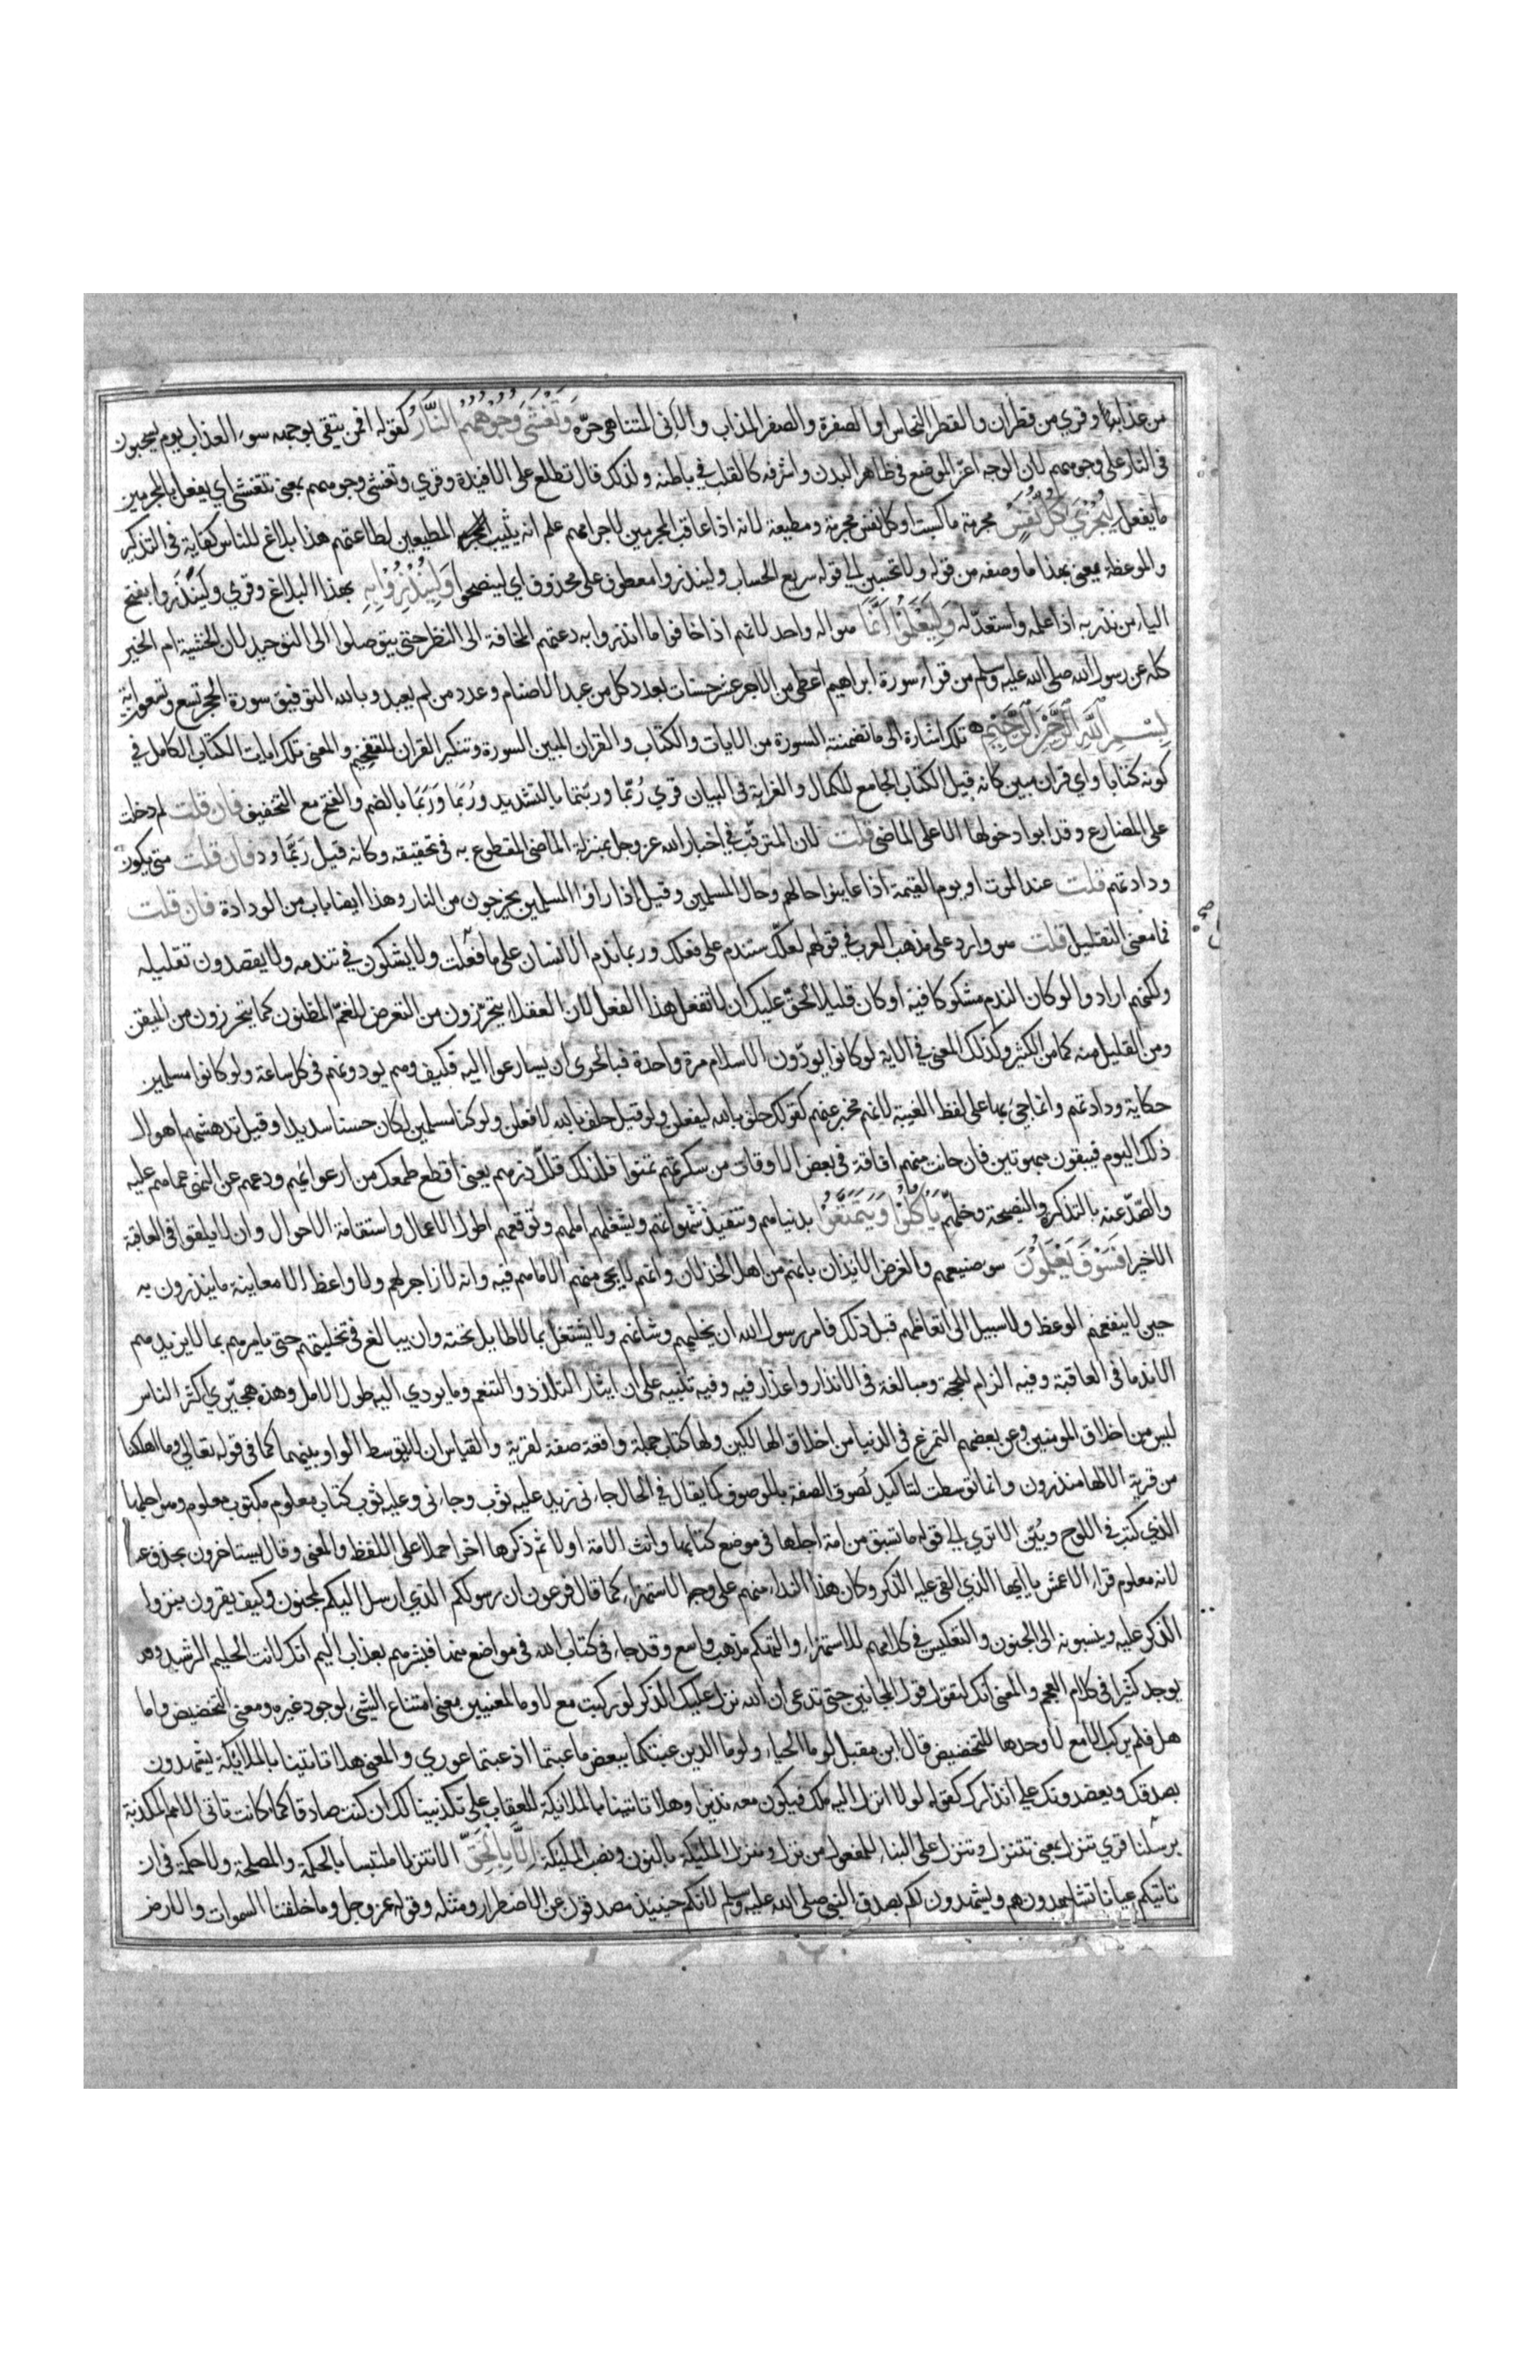 من عذابه وقري من قطران والقطر النحاس او الصفرة والصفر المذاب والآني المتناهي حرّه وَتَغْشَى وُجُوهَهُمُ النَّارُ كقوله افمن يتقي بوجهه سوء العذاب يوم يسحبون
في النار على وجوههم لان الوجه اعزّ الموضع في ظاهر البدن واشرفه كالقلب في باطنه ولذلك قال تطلع على الافئدة وقري وتغشى وجوههم بمعنى تتغشى اي يفعل بالمجرمين
ما يفعل لِيُجْزَيَ كُلُّ نَفْسٍ مجرمة ما كسبت او كل نفس مجرمة ومطيعة لانه اذا عاقب المجرمين لاجرامهم علم انه يثيب المطيعين لطاعتهم هذا بلاغ للناس كفاية في التذكير
والموعظة يعني بهذا ما وصفه من قوله ولا تحسبن الي قوله سريع الحساب ولينذروا معطوف على محذوف اي لينصحوا وَلِيُنْذَرُوْا بِهِ بهذا البلاغ وقري ولِيَنْذَروا بفتح
الياء من نذر به اذا علمه واستعدّ له وَلِيَعْلَمُوْا اَنَّمَا هو اله واحد لانهم اذا خافوا ما انذروا به دعتهم المخافة الى النظر حتى يتوصلوا الى التوحيد لان الخشية ام الخير
كله عن رسول الله صلى الله عليه وسلم من قراء سورة ابراهيم اعطي من الاجر عشر حسنات بعدد كل من عبد الاصنام وعدد من لم يعبد وبالله التوفيق سورة الحجر تسع وتسعون اية
بِسْمِ اللَّهِ الرَّحْمَنِ الرَّحِيْمِ تلك اشارة الى ما تضمنته السورة من الايات والكتاب والقران المبين السورة وتنكير القران للتفخيم والمعنى تلك ايات الكتاب الكامل في
كونه كتابا واي قران مبين كانه قيل الكتاب الجامع للكمال والغرابة في البيان قري رُبّما وربّتما بالتشديد ورُبَما ورَبَما بالضم والفتح مع التخفيف فان قلت لم دخلت
على المضارع وقد ابوا دخولها الا على الماضي قلت لان المترقّب في اخبار الله عز وجل بمنزلة الماضي المقطوع به في تحقيقه وكانه قيل ربّما ودّ فان قلت متى يكون
ودادتهم قلت عند الموت او يوم القيمة اذا عاينوا حالهم وحال المسلمين وقيل اذا راوا المسلمين يخرجون من النار وهذا ايضا باب من الودادة فان قلت
فما معنى التقليل قلت هو وارد على مذهب العرب في قولهم لعلّك ستندم على فعلك وربما ندم الانسان على ما فعلت ولا يشكون في تندمه ولا يقصدون تقليله
ولكنهم ارادوا لو كان الندم مشكوكا فيه او كان قليلا لحقّ عليك ان لا تفعل هذا الفعل لان العقلاء يتحرّزون من التعرض للغمّ المظنون كما يتحرزون من المتيقن
ومن القليل منه كما من الكثير وكذلك المعنى في الاية لو كانوا يودّون الاسلام مرة واحدة فبالحرى ان يسارعوا اليه فكيف وهم يودونهم في كل ساعة ولو كانوا مسلمين
حكاية ودادتهم وانما جيء بها على لفظ الغيبة لانهم مخبر عنهم كقولك حلف بالله ليفعلن ولو قيل حلف بالله لافعلن ولو كنا مسلمين لكان حسنا سديدا وقيل تدهشهم اهوال
ذلك اليوم فيبقون مبهوتين فان حانت منهم افاقة في بعض الاوقات من سكرتهم تمنوا فلذلك قلّل ذرهم يعنى اقطع طمعك من ارعوائهم ودعهم عن النهي عما هم عليه
والصّدّ عنه بالتذكرة والنصيحة وخلّهم يَاْكُلُوْا وَيَتَمَتَّعُوْا بدنياهم وتنفيذ شهواتهم ويشغلهم املهم وتوقعهم لطول الاعمال واستقامة الاحوال وان لا يلقوا في العاقبة
الا خيرا فَسَوْفَ يَعْلَمُوْنَ سوء صنيعهم والغرض الايذان بانهم من اهل الخذلان وانهم لا يجيء منهم الا ما هم فيه وانه لا زاجر لهم ولا واعظ الا معاينة ما ينذرون به
حين لا ينفعهم الوعظ ولا سبيل الى اتعاظهم قبل ذلك فامر رسول الله ان يخليهم وشانهم ولا يشتغل بما لا طايل تحته وان يبالغ في تخليتهم حتى يامرهم بما لا يزيدهم
الا ندما في العاقبة وفيه الزام للحجة ومبالغة في الانذار واعذار فيه وفيه تنبيه على ان ايثار التلذذ والتنعم وما يودي اليه طول الامل وهذه هجّيري اكثر الناس
ليس من اخلاق المومنين وعن بعضهم التمرغ في الدنيا من اخلاق الهالكين ولها كتاب جملة واقعة صفة لقرية والقياس ان لا يتوسط الواو بينهما كما في قوله تعالى وما اهلكنا
من قرية الا لها منذرون وانما توسطت لتاكيد لصوق الصفة بالموصوف كما يقال في الحال جاءني زيد عليه ثوب وجاءني وعليه ثوب كتاب معلوم مكتوب معلوم وهو اجلها
الذي كتب في اللوح وبُيّن الا ترى الي قوله ما تسبق من امة اجلها في موضع كتابها وانث الامة اولا ثم ذكرها اخرا حملا على اللفظ والمعنى وقال يستاخرون بحذف عنه
لانه معلوم قراء الاعمش يا ايها الذي القي عليه الذكر وكان هذا النداء منهم على وجه الاستهزاء كما قال فرعون ان رسولكم الذي ارسل اليكم لمجنون وكيف يقرون بنزول
الذكر عليه وينسبونه الى الجنون والتعكيس في كلامهم للاستهزاء والتهكم مذهب واسع وقد جاء في كتاب الله في مواضع منها فبشرهم بعذاب اليم انك لانت الحليم الرشيد وقد
يوجد كثيرا في كلام العجم والمعنى انك لتقول قول المجانين حتى تدعي ان الله نزل عليك الذكر لو ركبت مع لا وما لمعنيين معنى امتناع الشيء لوجود غيره ومعنى التحضيض واما
هل فلم يركب الا مع لا وحدها للتحضيض قال ابن مقبل لوما الحياء ولوما الدين عبتكما ببعض ما عبتما اذ عبتما عوري والمعنى هلا تاتينا بالملائكة يشهدون
بصدقك ويعضدونك على انذارك كقوله لولا انزل اليه ملك فيكون معه نذيرا وهلا تاتينا بالملائكة للعقاب على تكذيبنا لك ان كنت صادقا كما كانت تاتي الامم المكذبة
برسلنا قري تنزل بمعنى تتنزل وتنزل على البناء للمفعول من نزل وننزل الملئكة بالنون ونصب الملئكة اِلَّا بِالْحَقِّ الا تنزلا ملتبسا بالحكمة والمصلحة ولا حكمة في ان
تاتيكم عيانا تشاهدونهم ويشهدون لكم بصدق النبي صلى الله عليه وسلم لانكم حينئذ مصدقون عن الاضطرار ومثله وقوله عز وجل وما خلقنا السموات والارض